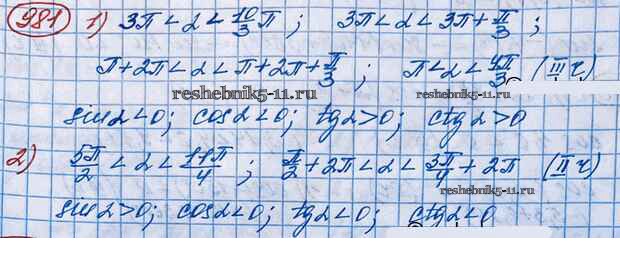 981 1) 3π < α < 10/3 π ; 3π < α < 3π + π/3 ;
π + 2π < α < π + 2π + π/3 ; π < α < 4π/3 (III ч)
reshebnik5-11.ru
sin α < 0 ; cos α < 0 ; tg α > 0 ; ctg α > 0
2) 5π/2 < α < 11π/4 ; π/2 + 2π < α < 3π/4 + 2π (II ч)
reshebnik5-11.ru
sin α > 0 ; cos α < 0 ; tg α < 0 ; ctg α < 0